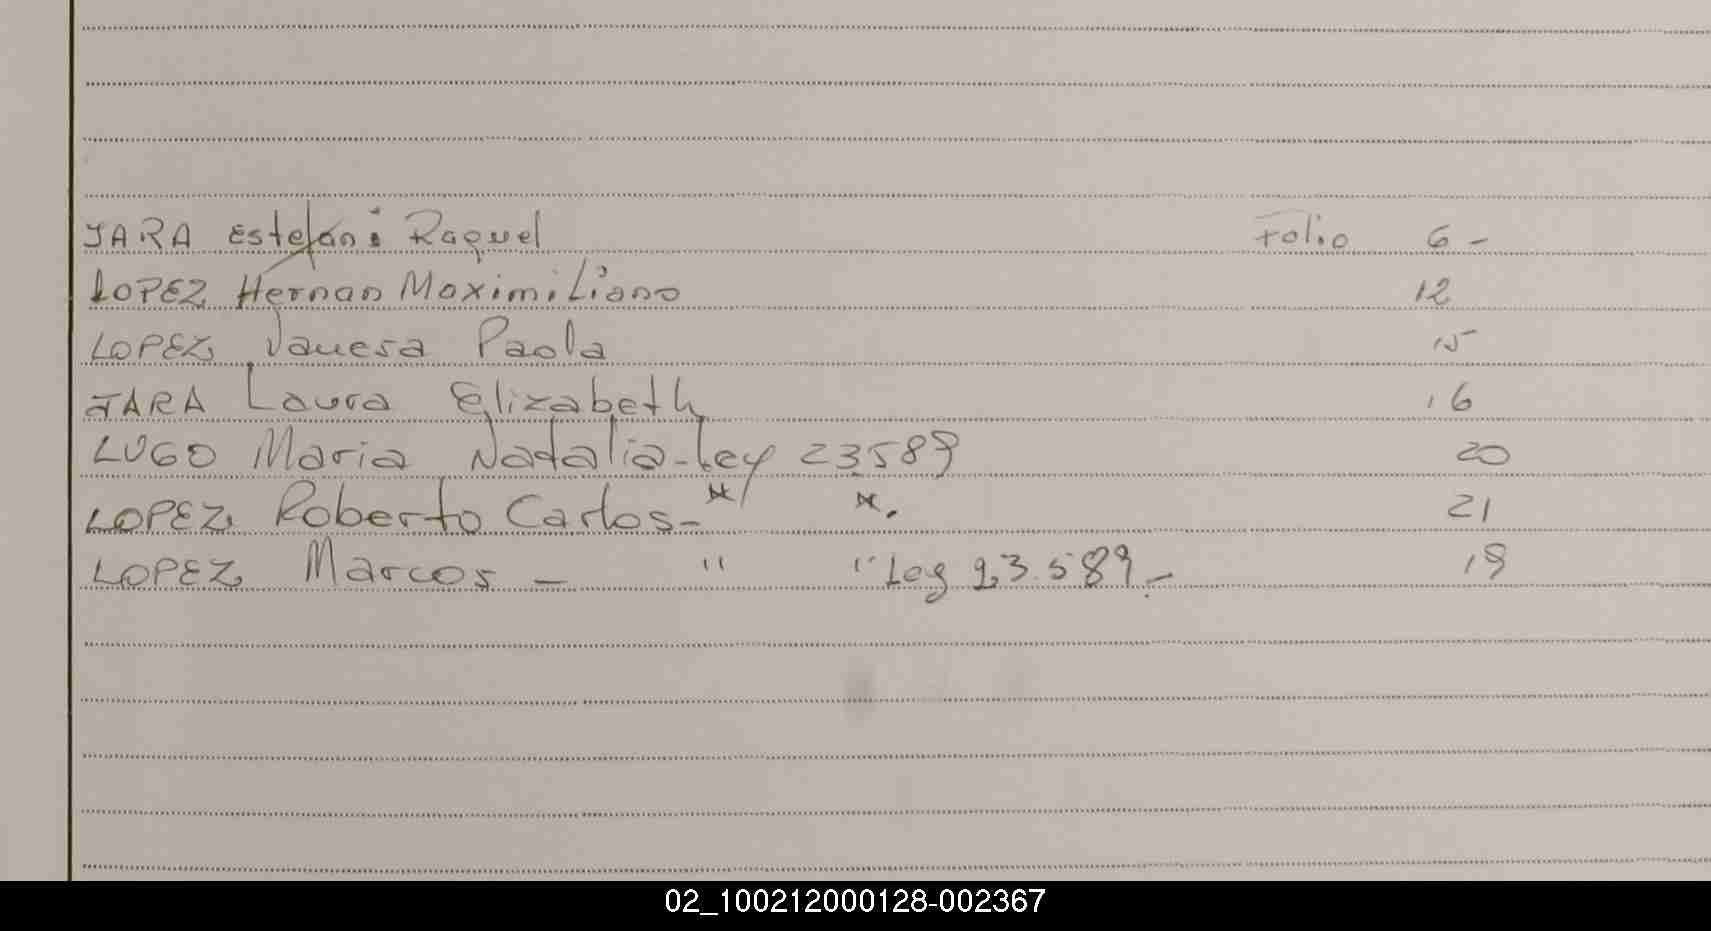 JARA Estefani Raquel Folio 6 -
LOPEZ Hernan Maximiliano 12
LOPEZ Vanesa Paola 15
JARA Laura Elizabeth 16
LUGO Maria Natalia - Ley 23589 20
LOPEZ Roberto Carlos - " " 21
LOPEZ Marcos - " " Ley 23.589 - 19
02_100212000128-002367